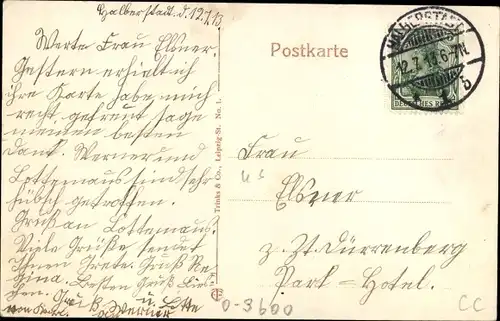 Halberstadt, d. 12.7.13.
Werte Frau Elsner.
Gestern erhielt ich
ihre Karte habe mich
recht gefreut sage
meinen besten
Dank. Werner und
Lottemaus sind sehr
hübsch getroffen.
Gruß an Lottemaus.
Viele Grüße sendet
Ihnen Grete. Gruß Re-
gina. Besten Gruß
Gruß Werner u. Lotte
Trinks & Co., Leipzig-St. No. 1.
Postkarte
HALBERSTADT
12.7.13. 6-7N.
b
DEUTSCHES REICH
Frau
Elsner
z. Zt. Dürrenberg
Park-Hotel.
0-3600
CC